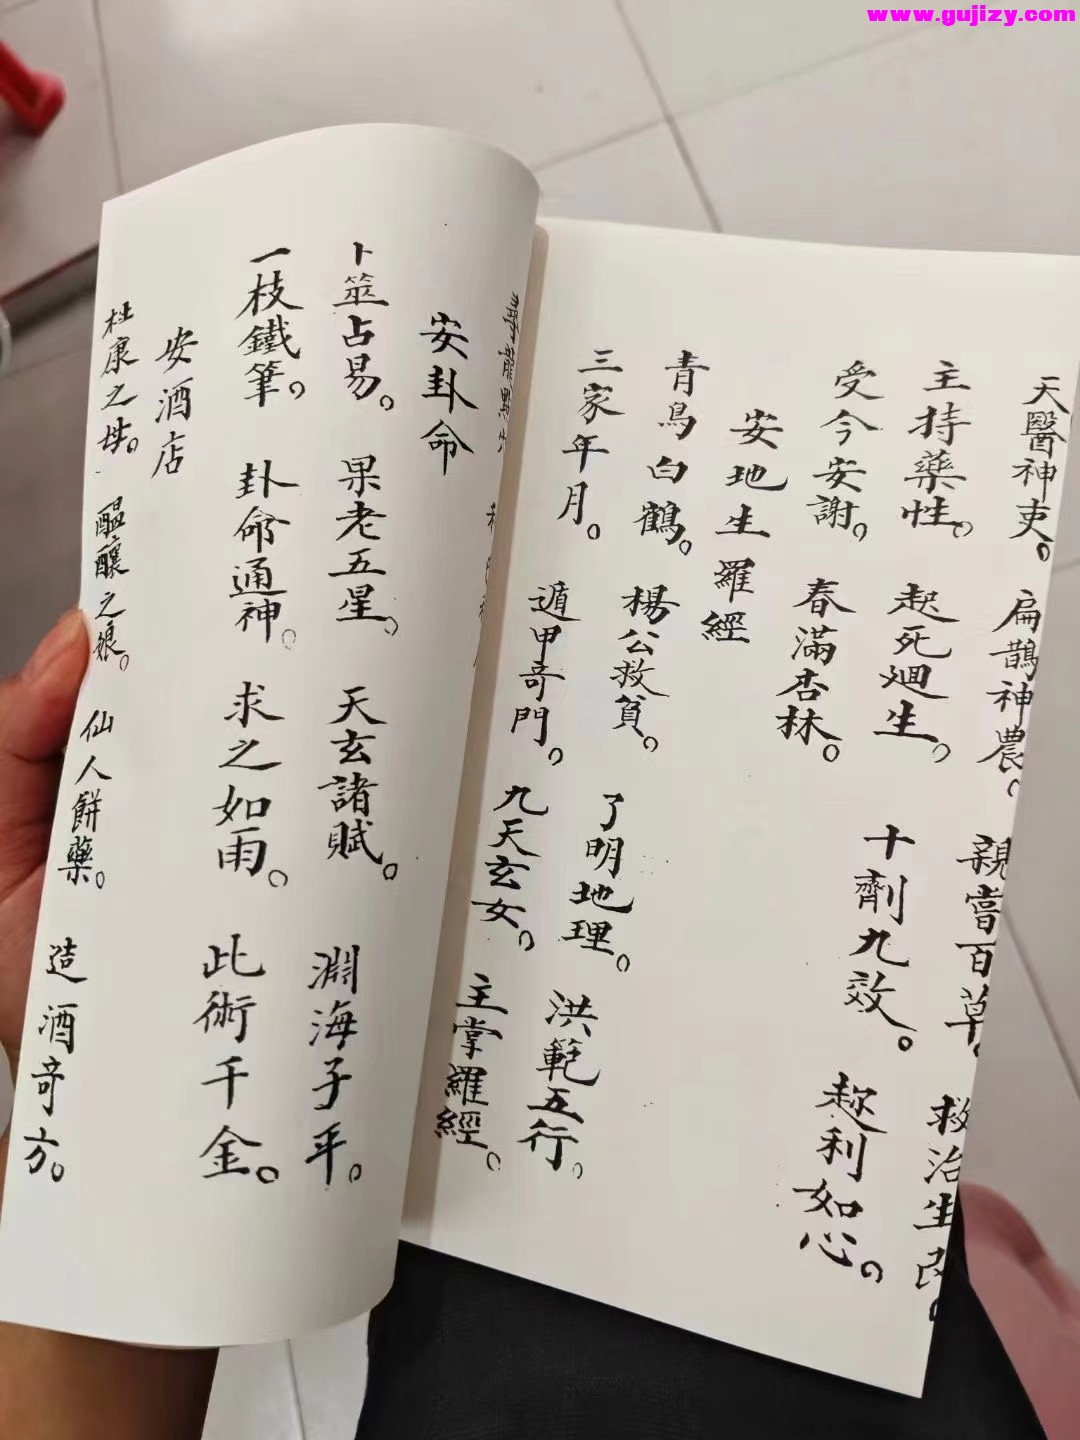 www.gujizy.com
天醫神吏。扁鵲神農。親嘗百草。救治生民。
主持藥性。起死廻生。十劑九效。趂利如心。
受今安謝。春滿杏林。
安地生羅經
青鳥白鶴。楊公救貧。了明地理。洪範五行。
三家年月。遁甲奇門。九天玄女。主掌羅經。
尋龍點穴
安卦命
卜筮占易。果老五星。天玄諸賦。淵海子平。
一枝鐵筆。卦命通神。求之如雨。此術千金。
安酒店
杜康之母。醖釀之娘。仙人餅藥。造酒奇方。